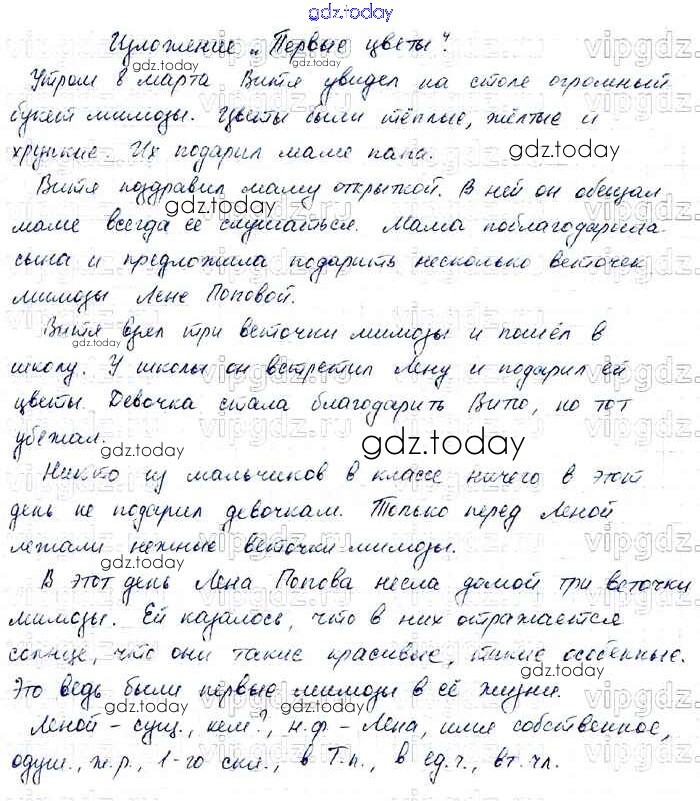 gdz.today
Изложение „Первые цветы".
Утром 8 марта Витя увидел на столе огромный
букет мимозы. Цветы были тёплые, жёлтые и
хрупкие. Их подарил маме папа.
Витя поздравил маму открыткой. В ней он обещал
маме всегда её слушаться. Мама поблагодарила
сына и предложила подарить несколько веточек
мимозы Лене Поповой.
Витя взял три веточки мимозы и пошёл в
школу. У школы он встретил Лену и подарил ей
цветы. Девочка стала благодарить Витю, но тот
убежал.
Никто из мальчиков в классе ничего в этот
день не подарил девочкам. Только перед Леной
лежали нежные веточки мимозы.
В этот день Лена Попова несла домой три веточки
мимозы. Ей казалось, что в них отражается
солнце, что они такие красивые, такие особенные.
Это ведь были первые мимозы в её жизни.
Леной – сущ., кем?, н.ф. – Лена, имя собственное,
одуш., ж.р., 1-го скл., в Т.п., в ед.ч., вт. чл.